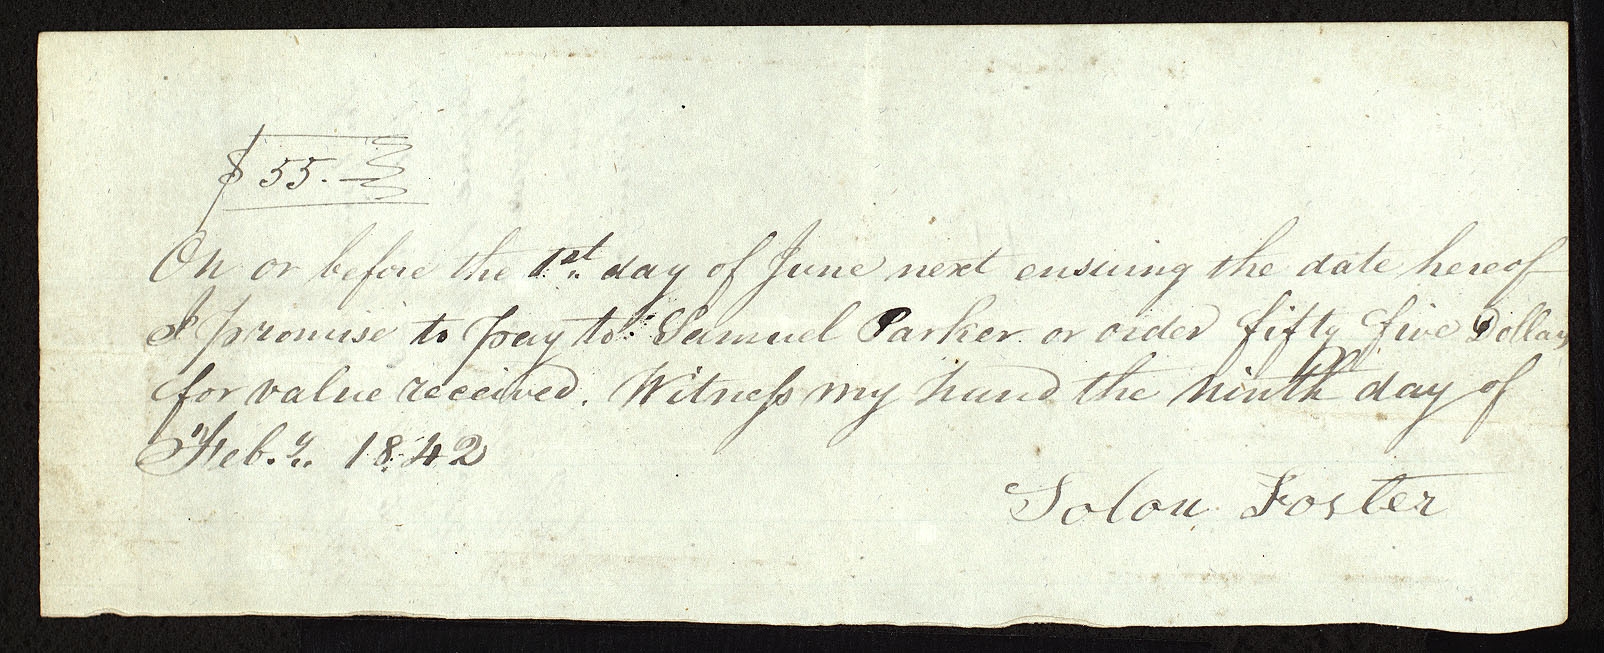 $55.—
On or before the 1st. day of June next ensuing the date hereof
I promise to pay to Samuel Parker or order fifty five Dollars
for value received. Witness my hand the ninth day of
Feb.y. 1842
Solon Foster